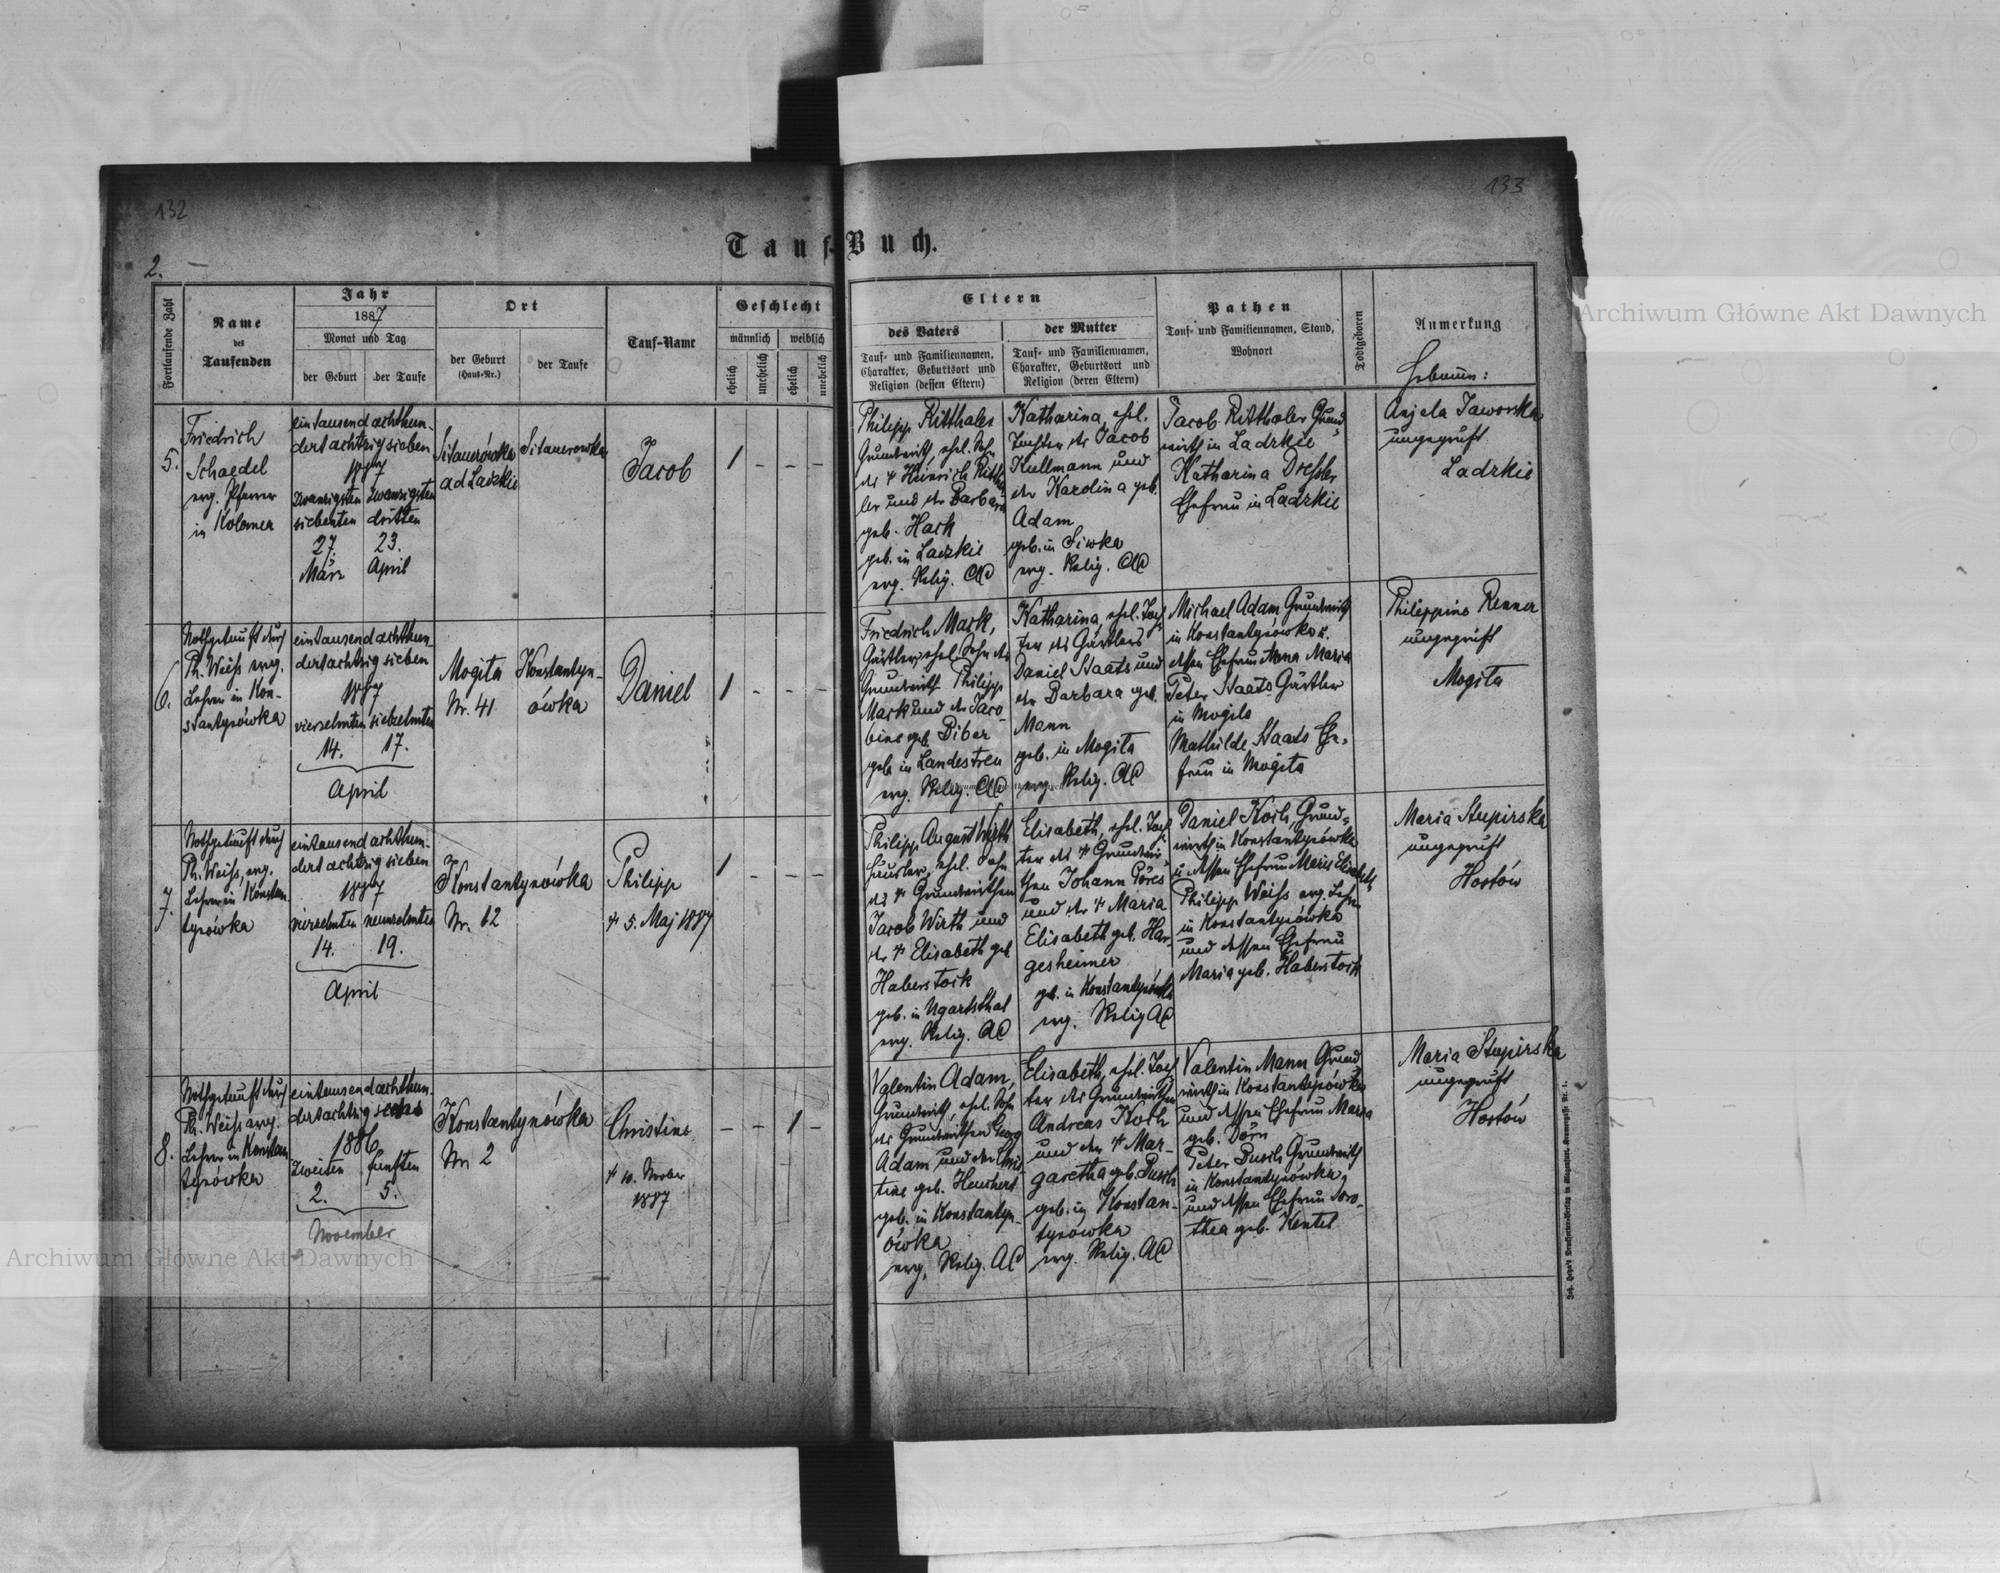 132
133
Tauf-Buch.
2.
Fortlaufende Zahl
Name
des
Taufenden
Jahr
1887
Monat und Tag
der Geburt
der Taufe
Ort
der Geburt
(Haus-Nr.)
der Taufe
Tauf-Name
Geschlecht
männlich
weiblich
ehelich
unehelich
ehelich
unehelich
Eltern
des Vaters
Tauf- und Familiennamen,
Charakter, Geburtsort und
Religion (dessen Eltern)
der Mutter
Tauf- und Familiennamen,
Charakter, Geburtsort und
Religion (deren Eltern)
Pathen
Tauf- und Familiennamen, Stand,
Wohnort
Todtgeboren
Anmerkung
Hebamme:
5.
Friedrich
Schaedel
evg. Pfarrer
in Kolomea
eintausend achthun-
dert achtzig sieben
1887
zwanzigsten
siebenten
27.
März
zwanzigsten
dritten
23.
April
Sitauerówka
ad Ladzkie
Sitauerowka
Jacob
1 - - -
Philipp Ritthaler
Grundwirth, ehel. Sohn
des † Heinrich Rittha
ler und der Barbara
geb. Hark
geb. in Ladzkie
evg. Relig. AC
Katharina, ehel.
Tochter des Jacob
Kullmann und
der Karolina geb.
Adam
geb. in Siwka
evg. Relig. AC
Jacob Ritthaler Grund
wirth in Ladzkie
Katharina Dressler
Ehefrau in Ladzkie
Anjela Jaworska
ungeprüft
Ladzkie
6.
Nothgetauft durch
Ph. Weiss evg.
Lehrer in Kon-
stantynówka
eintausend achthun-
dert achtzig sieben
1887
vierzehnten siebzehnten
14. 17.
April
Mogita
Nr. 41
Konstantyn-
ówka
Daniel
1 - - -
Friedrich Mark,
Gärtler, ehel. Sohn des
Grundwirth Philipp
Mark und der Jaco-
bine geb. Biber
geb. in Landestreu
evg. Relig. AC
Katharina, ehel. Toch
ter des Gärtlers
Daniel Staats und
der Barbara geb.
Mann
geb. in Mogita
evg. Relig. AC
Michael Adam Grundwirth
in Konstantynówka u.
dessen Ehefrau Anna Maria
Peter Staats Gärtler
in Mogila
Mathilde Staats Ehe-
frau in Mogita
Philippine Renner
ungeprüft
Mogita
7.
Nothgetauft durch
Ph. Weiss, evg.
Lehrer in Konstan
tynówka
eintausend achthun-
dert achtzig sieben
1887
vierzehnten neunzehnten
14. 19.
April
Konstantynówka
Nr. 12
Philipp
† 5. Maj 1887
1 - - -
Philipp August Wirth
Häusler, ehel. Sohn
des † Grundwirthen
Jacob Wirth und
der † Elisabeth geb.
Haberstock
geb. in Ugartsthal
evg. Relig. AC
Elisabeth, ehel. Toch
ter des † Grundwir-
then Johann Pores
und der † Maria
Elisabeth geb. Har-
gesheimer
geb. in Konstantynówka
evg. Relig AC
Daniel Koch, Grund-
wirth in Konstantynówka
u. dessen Ehefrau Maria Elisabeth
Philipp Weiss evg. Lehrer
in Konstantynówka
und dessen Ehefrau
Maria geb. Haberstock
Maria Stupirska
ungeprüft
Hostów
8.
Nothgetauft durch
Ph. Weiss evg.
Lehrer in Konstan
tynówka
eintausend achthun-
dert achtzig sechs
1886
zweiten fünften
2. 5.
November
Konstantynówka
Nr. 2
Christine
1887
- - 1 -
Valentin Adam,
Grundwirth, ehel. Sohn
des Grundwirthen Georg
Adam und der Chris
tine geb. Henchert
geb. in Konstantyn-
ówka
evg. Relig. AC
Elisabeth, ehel. Toch
ter des Grundwirthen
Andreas Koch
und der † Mar-
garetha geb. Busch
geb. in Konstan-
tynówka
evg. Relig. AC
Valentin Mann Grund
wirth in Konstantynówka
und dessen Ehefrau Maria
geb. Dörn
Peter Busch Grundwirth
in Konstantynówka,
und dessen Ehefrau Doro-
thea geb. Kentel
Maria Stupirska
ungeprüft
Hostów
Archiwum Główne Akt Dawnych
Archiwum Główne Akt Dawnych